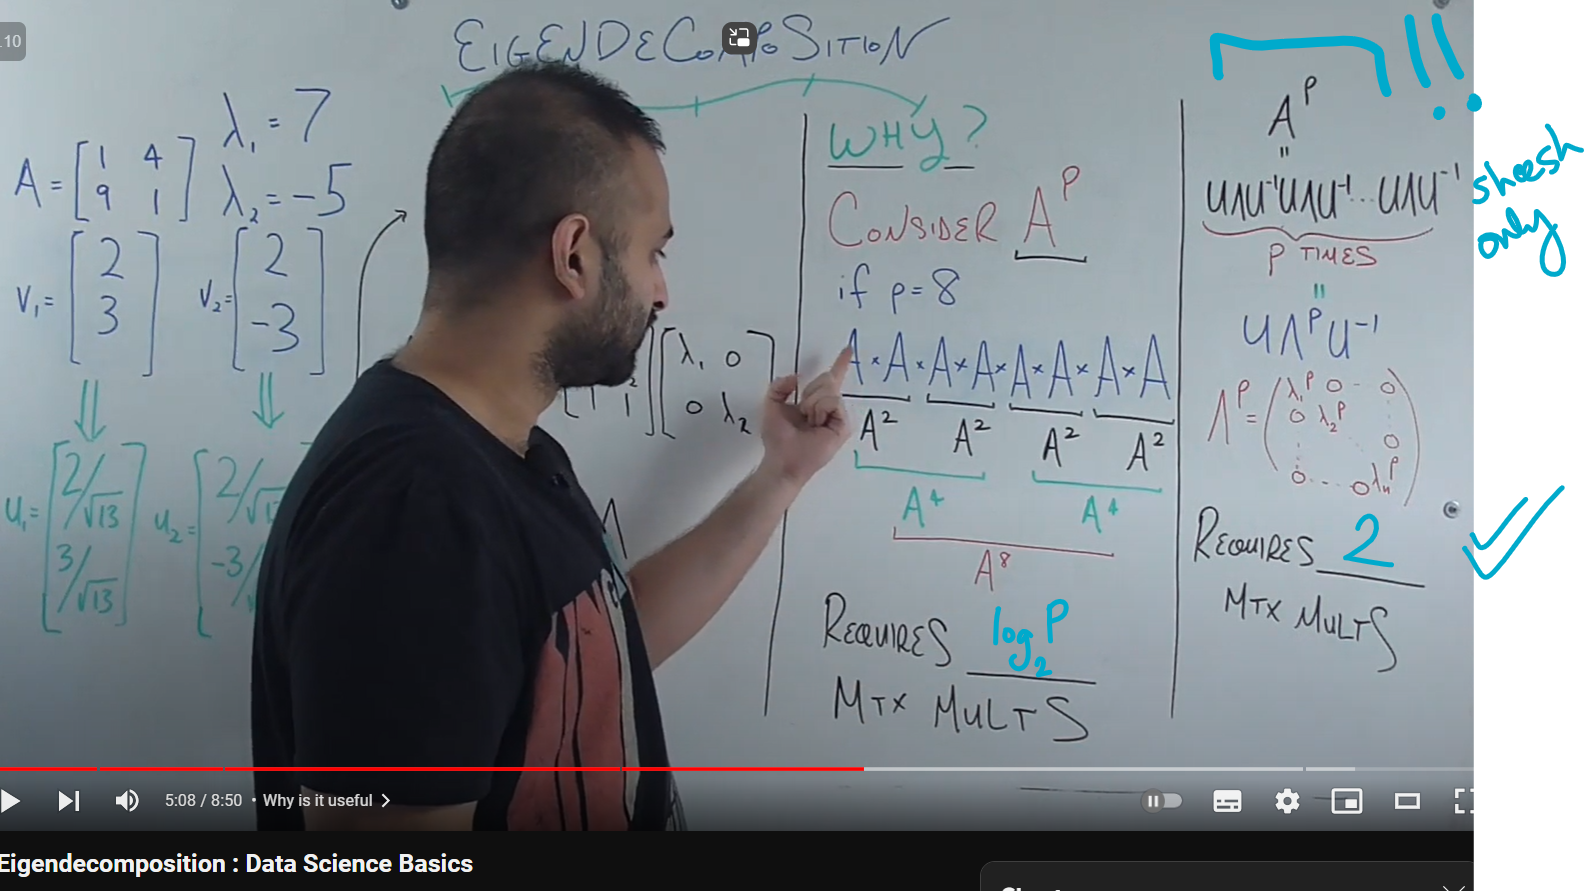 .10
EIGENDECOMPOSITION
A = [1 4
9 1]
λ₁ = 7
λ₂ = -5
V₁ = [2
3]
V₂ = [2
-3]
u₁ = [2/√13
3/√13]
u₂ = [2/√13
-3/
[λ₁ 0
0 λ₂]
Λ
WHY?
CONSIDER Aᴾ
if p = 8
A × A × A × A × A × A × A × A
A² A² A² A²
A⁴ A⁴
A⁸
REQUIRES log₂P
MTX MULTS
!!
Aᴾ
=
UΛU⁻¹UΛU⁻¹...UΛU⁻¹
P TIMES
=
UΛᴾU⁻¹
Λᴾ = (λ₁ᴾ 0 · · 0
0 λ₂ᴾ
0
0 . . . 0 λₙᴾ)
REQUIRES 2
MTX MULTS
sheesh
only
5:08 / 8:50 • Why is it useful
Eigendecomposition : Data Science Basics